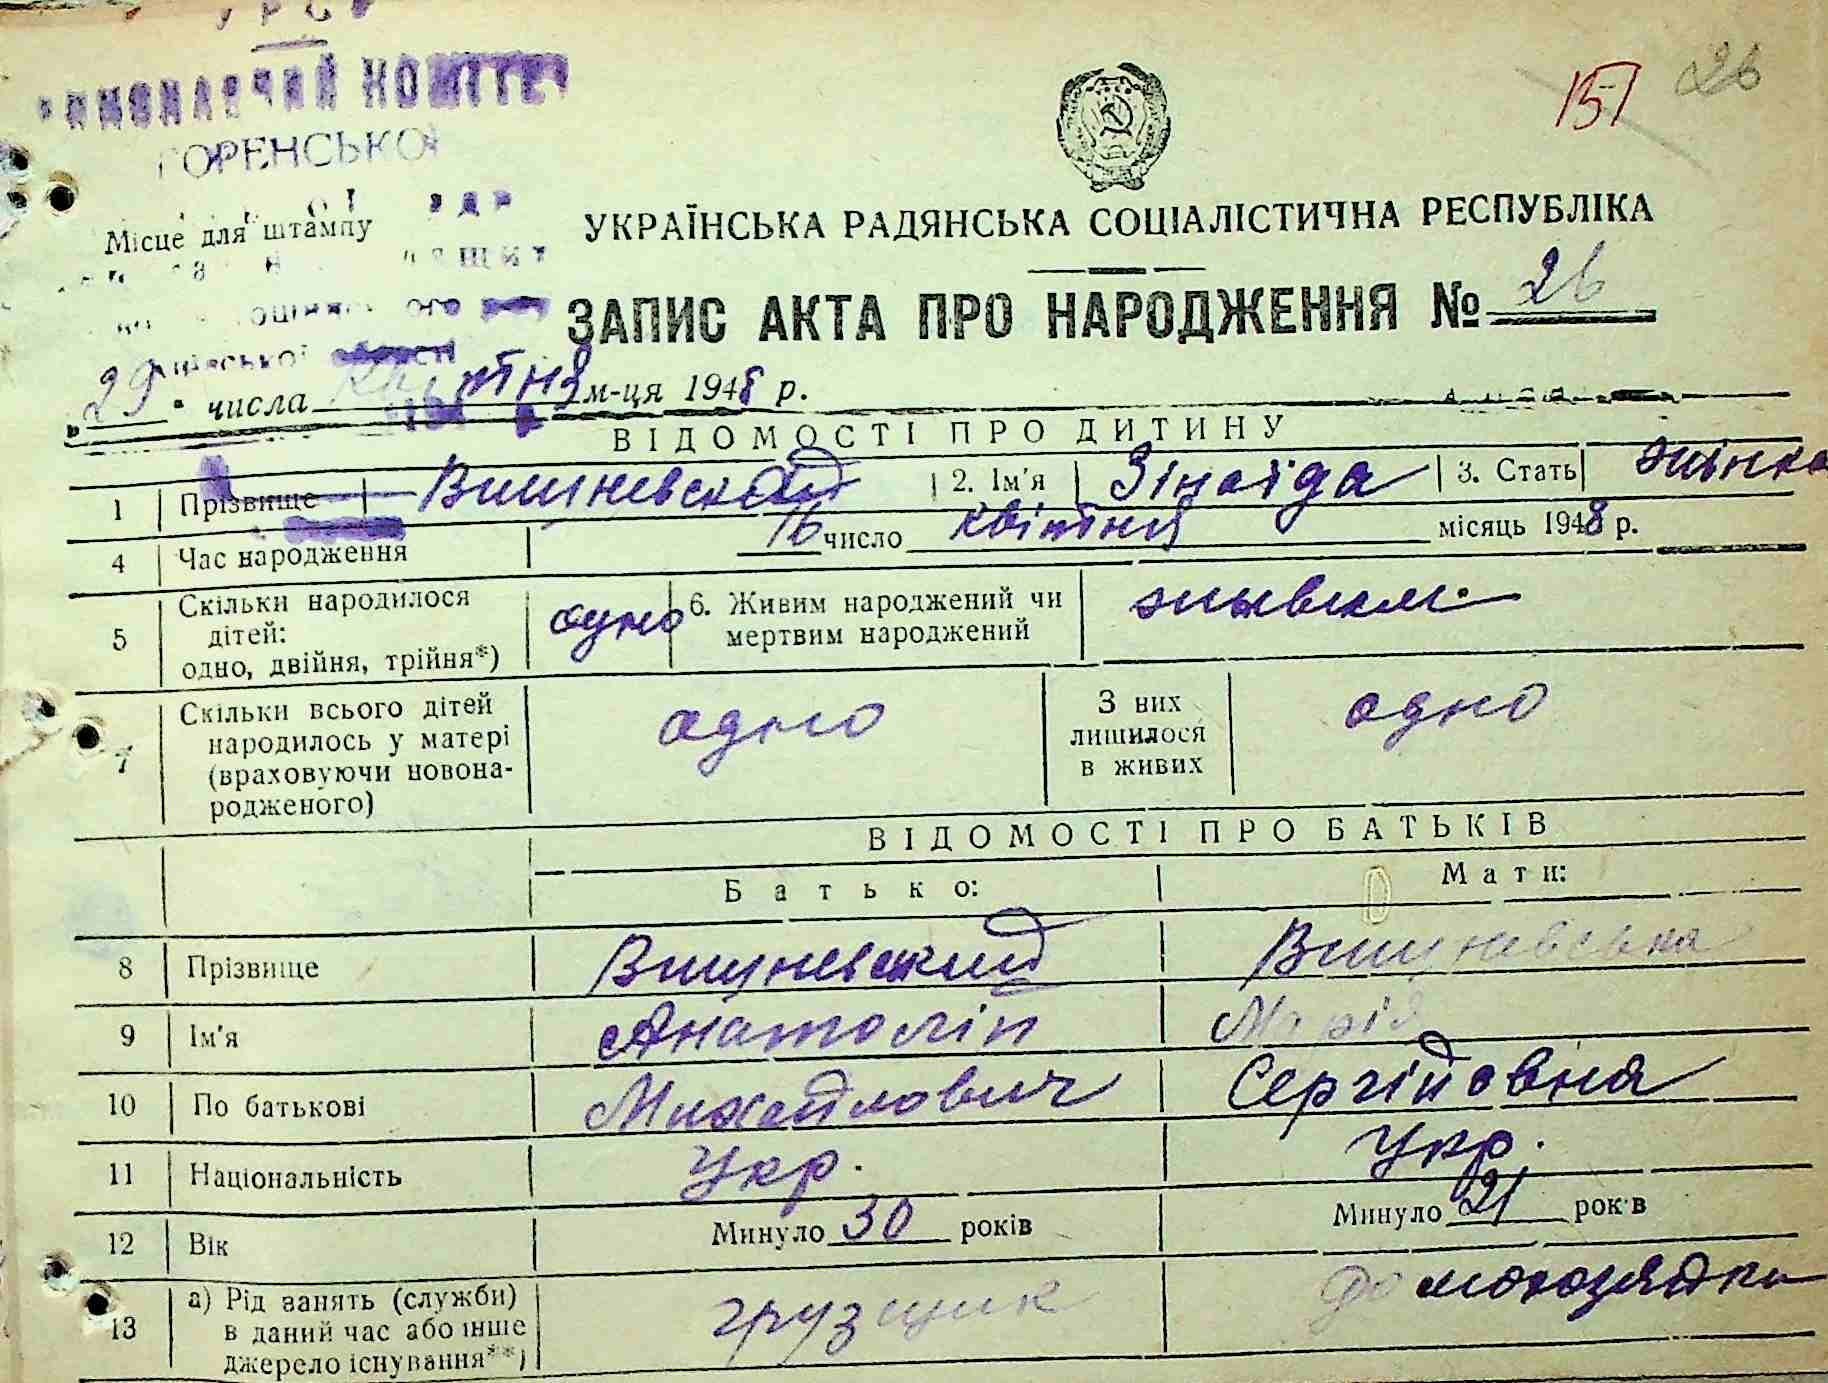 УРСР
ВИКОНАВЧИЙ КОМІТЕТ
ГОРЕНСЬКОЇ
151 26
Місце для штампу
УКРАЇНСЬКА РАДЯНСЬКА СОЦІАЛІСТИЧНА РЕСПУБЛІКА
ЗАПИС АКТА ПРО НАРОДЖЕННЯ № 26
„29" числа квітня м-ця 1948 р.
ВІДОМОСТІ ПРО ДИТИНУ
1 Прізвище Вишневская 2. Ім'я Зінаїда 3. Стать жінка
4 Час народження 16 число квітня місяць 1948 р.
5 Скільки народилося дітей: одно, двійня, трійня*) одно 6. Живим народжений чи мертвим народжений живим.
7 Скільки всього дітей народилось у матері (враховуючи новонародженого) одно З них лишилося в живих одно
ВІДОМОСТІ ПРО БАТЬКІВ
Батько: Мати:
8 Прізвище Вишневский Вишневська
9 Ім'я Анатолій Марія
10 По батькові Михайлович Сергійовна
11 Національність Укр. Укр.
12 Вік Минуло 30 років Минуло 21 років
13 а) Рід занять (служби) в даний час або інше джерело існування**) грузщик домохозядка